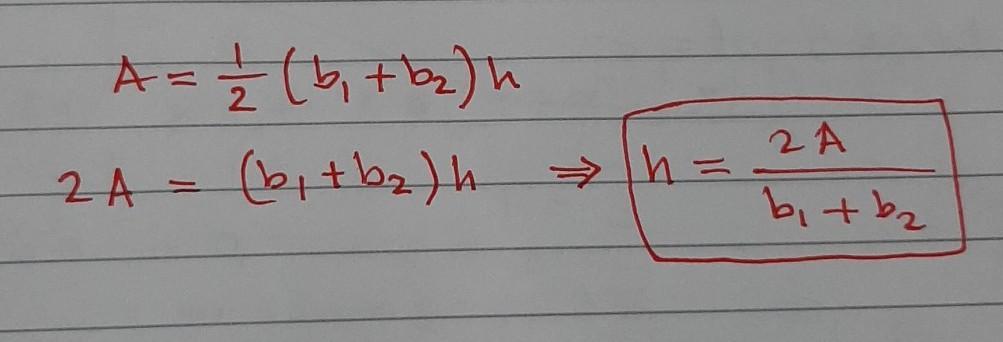 A = 1/2 (b₁ + b₂) h
2A = (b₁ + b₂) h ⇒ h = 2A / b₁ + b₂